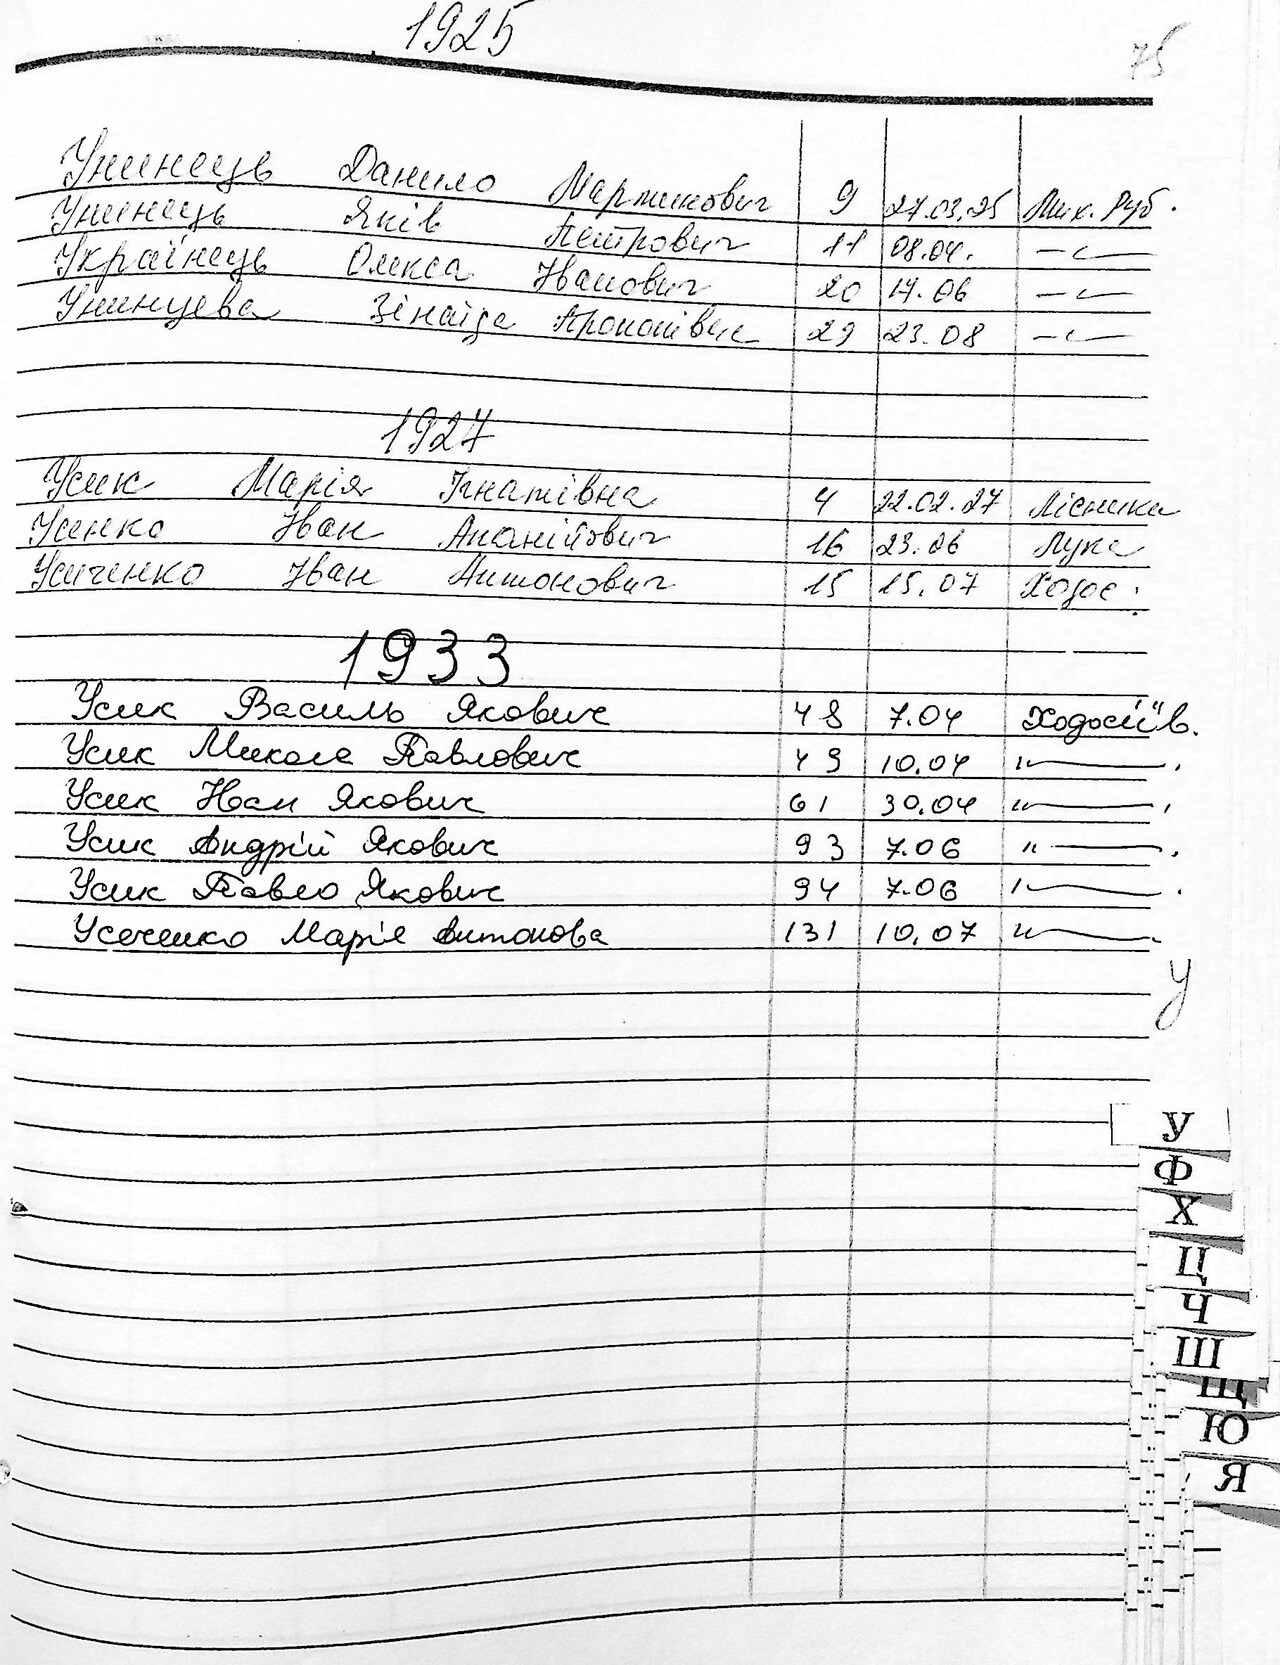 1925
75
Уминець Данило Мартинович 9 27.03.25 Мих. Руб.
Уминець Яків Петрович 11 08.04. —«—
Українець Олекса Іванович 20 17.06 —«—
Уминцева Зінаїда Прокопівна 29 23.08 —«—
1927
Усик Марія Ігнатівна 4 22.02.27 Лісники
Усенко Іван Ананійович 16 23.06 Лука
Усиченко Іван Антонович 15 15.07 Ходос.
1933
Усик Василь Якович 48 7.04 Ходосіїв.
Усик Микола Павлович 49 10.04 "—
Усик Іван Якович 61 30.04 "—
Усик Андрій Якович 93 7.06 "—
Усик Павло Якович 94 7.06 "—
Усеченко Марія Антонова 131 10.07 "—
У
У
Ф
Х
Ц
Ч
Ш
Щ
Ю
Я